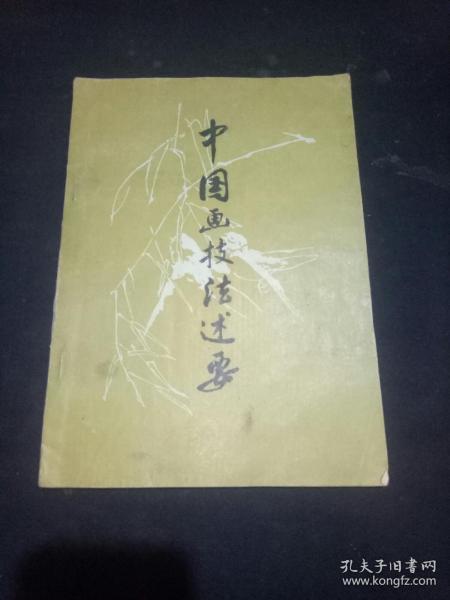 中国画技法述要
孔夫子旧书网
www.kongfz.com